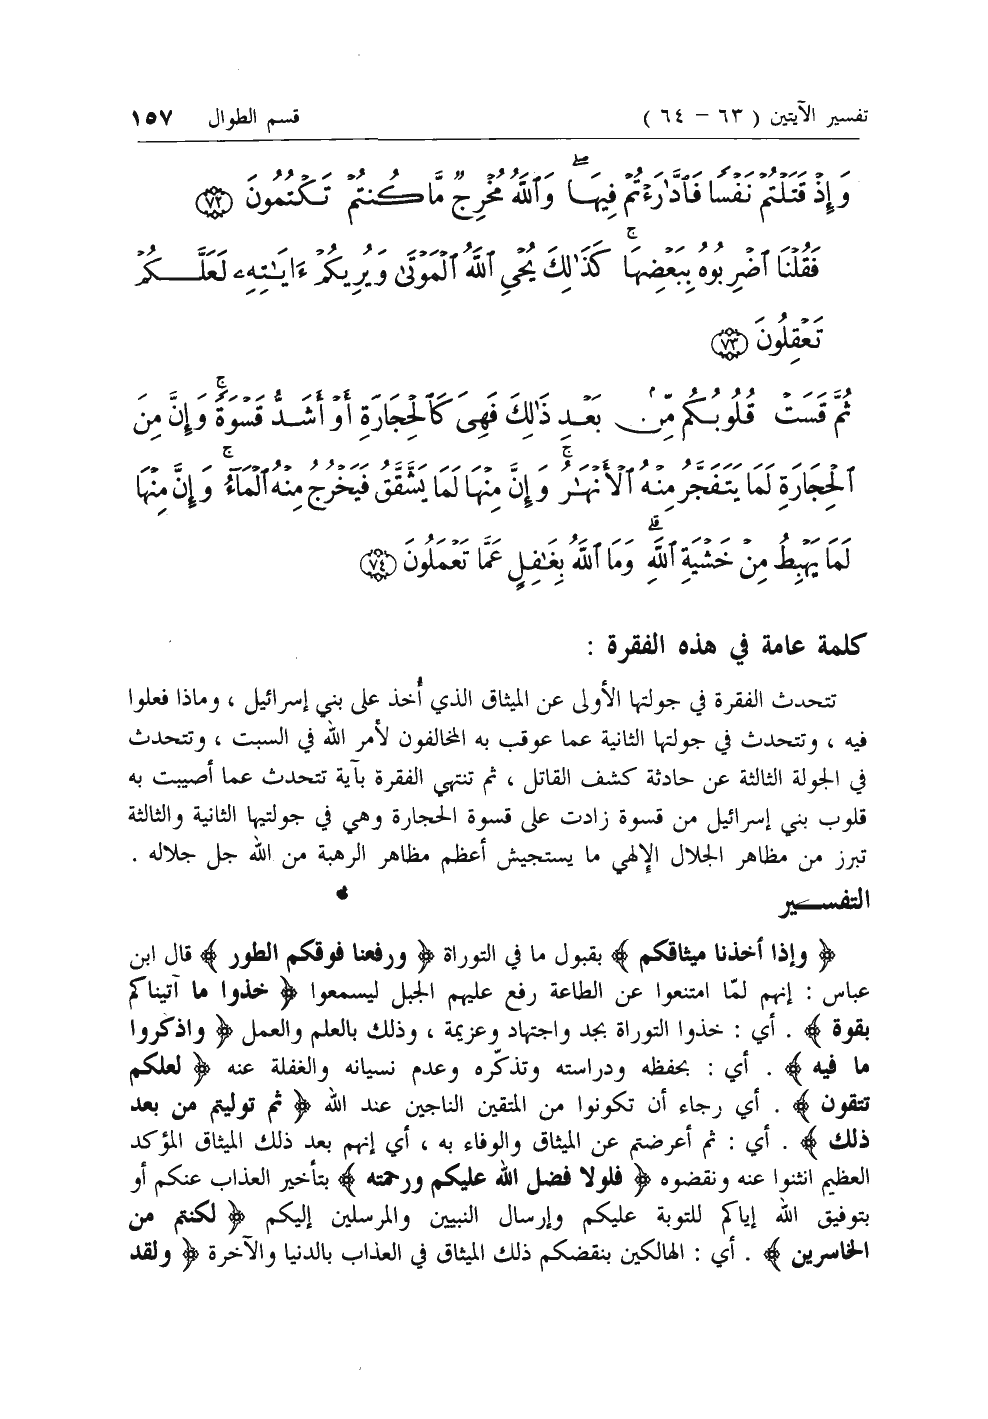 تفسير الآيتين ( ٦٣ - ٦٤ ) قسم الطوال ١٥٧
وَإِذْ قَتَلْتُمْ نَفْسًا فَادَّارَءْتُمْ فِيهَا ۖ وَاللَّهُ مُخْرِجٌ مَّا كُنتُمْ تَكْتُمُونَ ﴿٧٢﴾
فَقُلْنَا اضْرِبُوهُ بِبَعْضِهَا ۚ كَذَٰلِكَ يُحْيِ اللَّهُ الْمَوْتَىٰ وَيُرِيكُمْ ءَايَٰتِهِۦ لَعَلَّكُمْ
تَعْقِلُونَ ﴿٧٣﴾
ثُمَّ قَسَتْ قُلُوبُكُم مِّنۢ بَعْدِ ذَٰلِكَ فَهِىَ كَالْحِجَارَةِ أَوْ أَشَدُّ قَسْوَةً ۚ وَإِنَّ مِنَ
الْحِجَارَةِ لَمَا يَتَفَجَّرُ مِنْهُ الْأَنْهَٰرُ ۚ وَإِنَّ مِنْهَا لَمَا يَشَّقَّقُ فَيَخْرُجُ مِنْهُ الْمَآءُ ۚ وَإِنَّ مِنْهَا
لَمَا يَهْبِطُ مِنْ خَشْيَةِ اللَّهِ ۗ وَمَا اللَّهُ بِغَٰفِلٍ عَمَّا تَعْمَلُونَ ﴿٧٤﴾
كلمة عامة في هذه الفقرة :
تتحدث الفقرة في جولتها الأولى عن الميثاق الذي أُخذ على بني إسرائيل ، وماذا فعلوا
فيه ، وتتحدث في جولتها الثانية عما عوقب به المخالفون لأمر الله في السبت ، وتتحدث
في الجولة الثالثة عن حادثة كشف القاتل ، ثم تنتهي الفقرة بآية تتحدث عما أصيبت به
قلوب بني إسرائيل من قسوة زادت على قسوة الحجارة وهي في جولتيها الثانية والثالثة
تبرز من مظاهر الجلال الإلهي ما يستجيش أعظم مظاهر الرهبة من الله جل جلاله .
التفسير
﴿ وإذا أخذنا ميثاقكم ﴾ بقبول ما في التوراة ﴿ ورفعنا فوقكم الطور ﴾ قال ابن
عباس : إنهم لمّا امتنعوا عن الطاعة رفع عليهم الجبل ليسمعوا ﴿ خذوا ما آتيناكم
بقوة ﴾ . أي : خذوا التوراة بجد واجتهاد وعزيمة ، وذلك بالعلم والعمل ﴿ واذكروا
ما فيه ﴾ . أي : بحفظه ودراسته وتذكّره وعدم نسيانه والغفلة عنه ﴿ لعلكم
تتقون ﴾ . أي رجاء أن تكونوا من المتقين الناجين عند الله ﴿ ثم توليتم من بعد
ذلك ﴾ . أي : ثم أعرضتم عن الميثاق والوفاء به ، أي إنهم بعد ذلك الميثاق المؤكد
العظيم انثنوا عنه ونقضوه ﴿ فلولا فضل الله عليكم ورحمته ﴾ بتأخير العذاب عنكم أو
بتوفيق الله إياكم للتوبة عليكم وإرسال النبيين والمرسلين إليكم ﴿ لكنتم من
الخاسرين ﴾ . أي : الهالكين بنقضكم ذلك الميثاق في العذاب بالدنيا والآخرة ﴿ ولقد